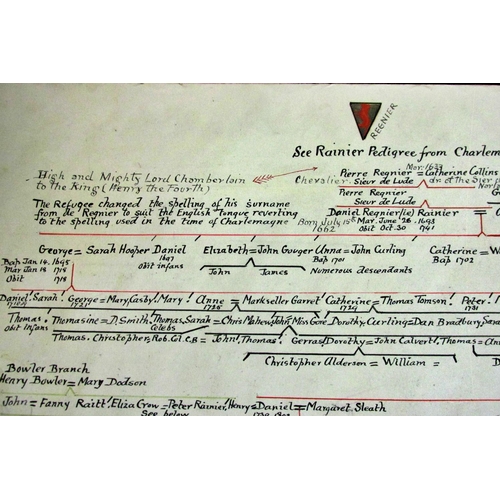 REGNIER
See Rainier Pedigree from Charlem
Mar: 1633
High and Mighty Lord Chamberlain
to the King (Henry the Fourth)
Chevalier Pierre Regnier = Catherine Collins
Sieur de Lude dr. of the Sieur
Pierre Regnier
Sieur de Lude
The Refugee changed the spelling of his surname
from de Regnier to suit the English tongue reverting
to the spelling used in the time of Charlemagne
Daniel Regnier (ie) Rainier =
Born July 15th Mar. June 28 - 1693
1662 Obit Oct. 30 1741
George = Sarah Hooper Daniel Elizabeth = John Gouger Anna = John Curling Catherine = W
Bap Jan 14. 1695 1697 Bap 1701 Bap 1702
Mar Jan 18 1718 Obit infans John James Numerous descendants
Obit 1718
Daniel, Sarah! George = Mary Casby! Mary! Anne = Markseller Garret! Catherine = Thomas Tomson! Peter!
Thomas. Thomasine = D. Smith! Thomas, Sarah = Chris Mahew! John. Miss Gore, Dorothy, Curling = Dan Bradbury,
Obit Infans Celebs
Thomas. Christopher, Rob. Gil. C.B = John! Thomas! Gerras/Dorothy = John Calvert, Thomas =
Christopher Alderson = William = D
Bowler Branch
Henry Bowler = Mary Dodson
John = Fanny Raitt! Eliza Crow = Peter Rainier! Henry = Daniel = Margaret Sleath
See below